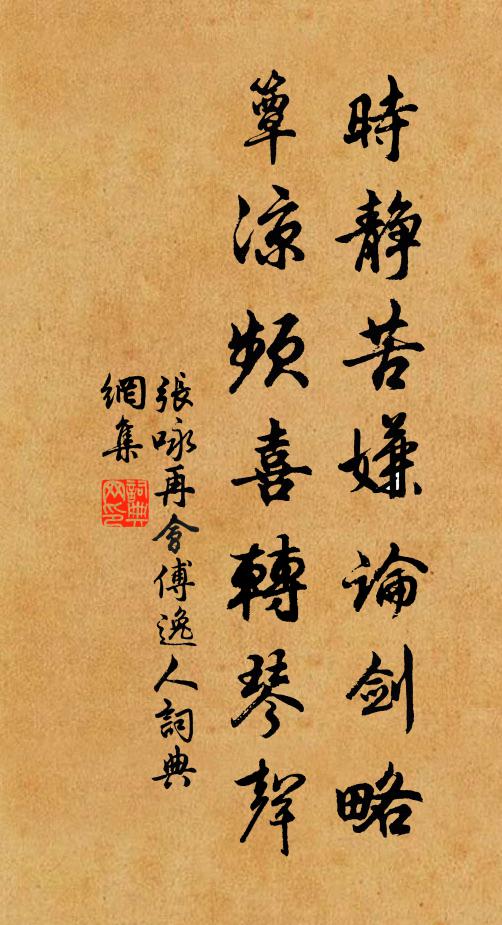 時靜苦嫌論劍略
簟涼頻喜轉琴聲
張咏再會傅逸人詞典
網集
詞典
网印